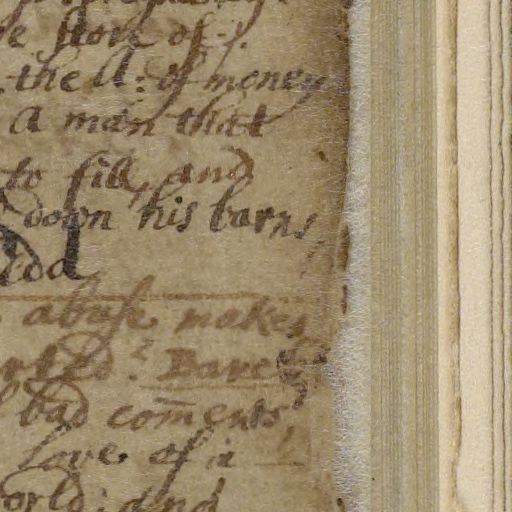 store of
the A: of money
A man that
to fill, and
down his barns,
abuse makes
Bare
bad com̄ents
Love of it
orld: and